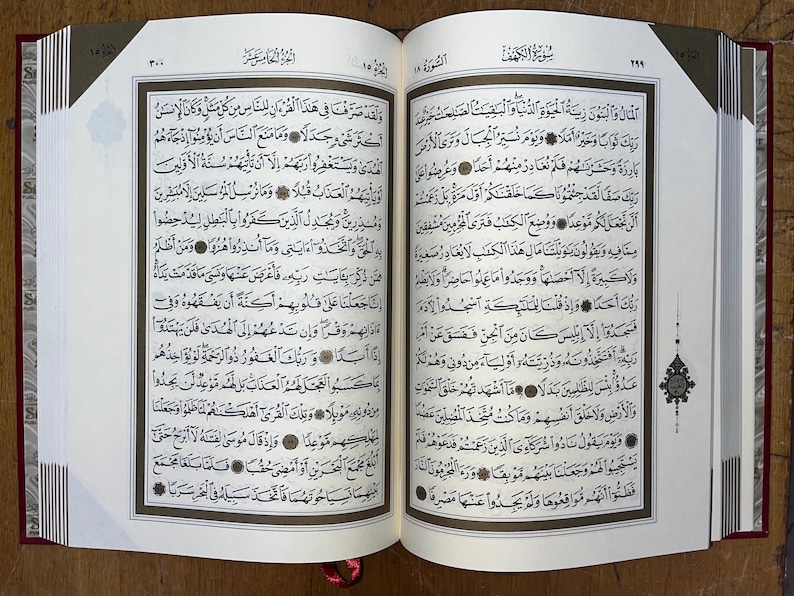 سُورَةُ الكَهْفِ ٢٩٩
السُّورَةُ ١٨
الجُزْءُ ١٥
ٱلْمَالُ وَٱلْبَنُونَ زِينَةُ ٱلْحَيَوٰةِ ٱلدُّنْيَا ۖ وَٱلْبَٰقِيَٰتُ ٱلصَّٰلِحَٰتُ خَيْرٌ عِندَ
رَبِّكَ ثَوَابًا وَخَيْرٌ أَمَلًا ٤٦ وَيَوْمَ نُسَيِّرُ ٱلْجِبَالَ وَتَرَى ٱلْأَرْضَ
بَارِزَةً وَحَشَرْنَٰهُمْ فَلَمْ نُغَادِرْ مِنْهُمْ أَحَدًا ٤٧ وَعُرِضُوا۟ عَلَىٰ
رَبِّكَ صَفًّا لَّقَدْ جِئْتُمُونَا كَمَا خَلَقْنَٰكُمْ أَوَّلَ مَرَّةٍۭ ۚ بَلْ زَعَمْتُمْ
أَلَّن نَّجْعَلَ لَكُم مَّوْعِدًا ٤٨ وَوُضِعَ ٱلْكِتَٰبُ فَتَرَى ٱلْمُجْرِمِينَ مُشْفِقِينَ
مِمَّا فِيهِ وَيَقُولُونَ يَٰوَيْلَتَنَا مَالِ هَٰذَا ٱلْكِتَٰبِ لَا يُغَادِرُ صَغِيرَةً
وَلَا كَبِيرَةً إِلَّآ أَحْصَىٰهَا ۚ وَوَجَدُوا۟ مَا عَمِلُوا۟ حَاضِرًا ۗ وَلَا يَظْلِمُ
رَبُّكَ أَحَدًا ٤٩ وَإِذْ قُلْنَا لِلْمَلَٰٓئِكَةِ ٱسْجُدُوا۟ لِءَادَمَ
فَسَجَدُوٓا۟ إِلَّآ إِبْلِيسَ كَانَ مِنَ ٱلْجِنِّ فَفَسَقَ عَنْ أَمْرِ
رَبِّهِۦٓ ۗ أَفَتَتَّخِذُونَهُۥ وَذُرِّيَّتَهُۥٓ أَوْلِيَآءَ مِن دُونِى وَهُمْ لَكُمْ
عَدُوٌّۢ ۚ بِئْسَ لِلظَّٰلِمِينَ بَدَلًا ٥٠ مَّآ أَشْهَدتُّهُمْ خَلْقَ ٱلسَّمَٰوَٰتِ
وَٱلْأَرْضِ وَلَا خَلْقَ أَنفُسِهِمْ وَمَا كُنتُ مُتَّخِذَ ٱلْمُضِلِّينَ عَضُدًا
٥١ وَيَوْمَ يَقُولُ نَادُوا۟ شُرَكَآءِىَ ٱلَّذِينَ زَعَمْتُمْ فَدَعَوْهُمْ فَلَمْ
يَسْتَجِيبُوا۟ لَهُمْ وَجَعَلْنَا بَيْنَهُم مَّوْبِقًا ٥٢ وَرَءَا ٱلْمُجْرِمُونَ ٱلنَّارَ
فَظَنُّوٓا۟ أَنَّهُم مُّوَاقِعُوهَا وَلَمْ يَجِدُوا۟ عَنْهَا مَصْرِفًا ٥٣
الجُزْءُ ١٥
الجُزْءُ الخَامِسَ عَشَرَ ٣٠٠
الجُزْءُ ١٥
وَلَقَدْ صَرَّفْنَا فِى هَٰذَا ٱلْقُرْءَانِ لِلنَّاسِ مِن كُلِّ مَثَلٍ ۚ وَكَانَ ٱلْإِنسَٰنُ
أَكْثَرَ شَىْءٍ جَدَلًا ٥٤ وَمَا مَنَعَ ٱلنَّاسَ أَن يُؤْمِنُوٓا۟ إِذْ جَآءَهُمُ
ٱلْهُدَىٰ وَيَسْتَغْفِرُوا۟ رَبَّهُمْ إِلَّآ أَن تَأْتِيَهُمْ سُنَّةُ ٱلْأَوَّلِينَ
أَوْ يَأْتِيَهُمُ ٱلْعَذَابُ قُبُلًا ٥٥ وَمَا نُرْسِلُ ٱلْمُرْسَلِينَ إِلَّا مُبَشِّرِينَ
وَمُنذِرِينَ ۚ وَيُجَٰدِلُ ٱلَّذِينَ كَفَرُوا۟ بِٱلْبَٰطِلِ لِيُدْحِضُوا۟
بِهِ ٱلْحَقَّ ۖ وَٱتَّخَذُوٓا۟ ءَايَٰتِى وَمَآ أُنذِرُوا۟ هُزُوًا ٥٦ وَمَنْ أَظْلَمُ
مِمَّن ذُكِّرَ بِـَٔايَٰتِ رَبِّهِۦ فَأَعْرَضَ عَنْهَا وَنَسِىَ مَا قَدَّمَتْ يَدَاهُ ۚ
إِنَّا جَعَلْنَا عَلَىٰ قُلُوبِهِمْ أَكِنَّةً أَن يَفْقَهُوهُ وَفِىٓ
ءَاذَانِهِمْ وَقْرًا ۖ وَإِن تَدْعُهُمْ إِلَى ٱلْهُدَىٰ فَلَن يَهْتَدُوٓا۟
إِذًا أَبَدًا ٥٧ وَرَبُّكَ ٱلْغَفُورُ ذُو ٱلرَّحْمَةِ ۖ لَوْ يُؤَاخِذُهُم
بِمَا كَسَبُوا۟ لَعَجَّلَ لَهُمُ ٱلْعَذَابَ ۚ بَل لَّهُم مَّوْعِدٌ لَّن يَجِدُوا۟
مِن دُونِهِۦ مَوْئِلًا ٥٨ وَتِلْكَ ٱلْقُرَىٰٓ أَهْلَكْنَٰهُمْ لَمَّا ظَلَمُوا۟ وَجَعَلْنَا
لِمَهْلِكِهِم مَّوْعِدًا ٥٩ وَإِذْ قَالَ مُوسَىٰ لِفَتَىٰهُ لَآ أَبْرَحُ حَتَّىٰٓ
أَبْلُغَ مَجْمَعَ ٱلْبَحْرَيْنِ أَوْ أَمْضِىَ حُقُبًا ٦٠ فَلَمَّا بَلَغَا مَجْمَعَ
بَيْنِهِمَا نَسِيَا حُوتَهُمَا فَٱتَّخَذَ سَبِيلَهُۥ فِى ٱلْبَحْرِ سَرَبًا ٦١
الجُزْءُ ١٥